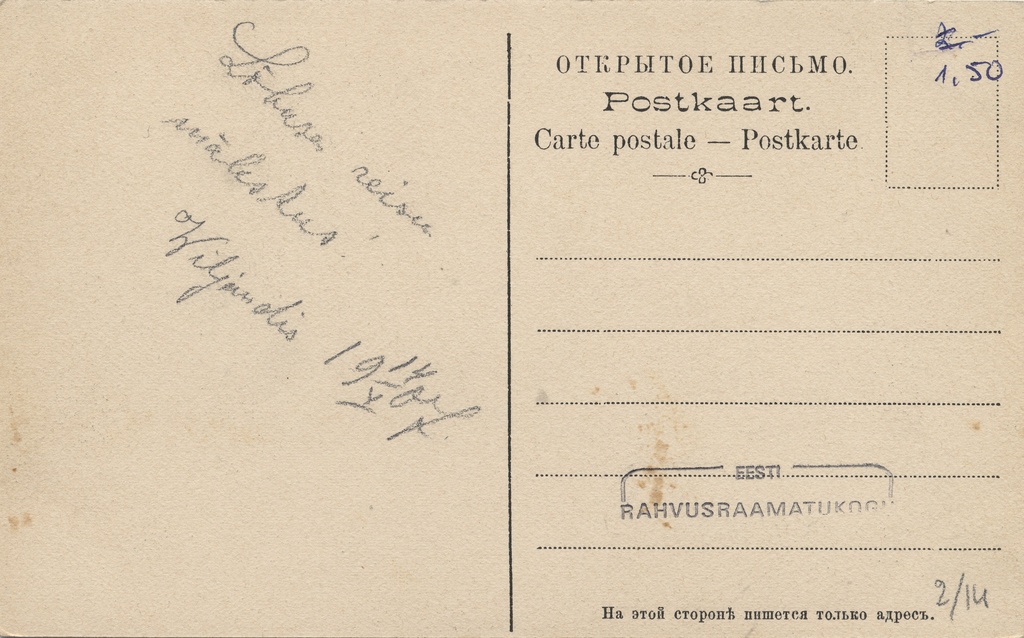 Lõbusa reisu
mälestus
Wiljandis 19 14/X
ОТКРЫТОЕ ПИСЬМО.
Postkaart.
Carte postale — Postkarte
1.50
EESTI
RAHVUSRAAMATUKOGU
На этой сторонѣ пишется только адресъ.
2/14